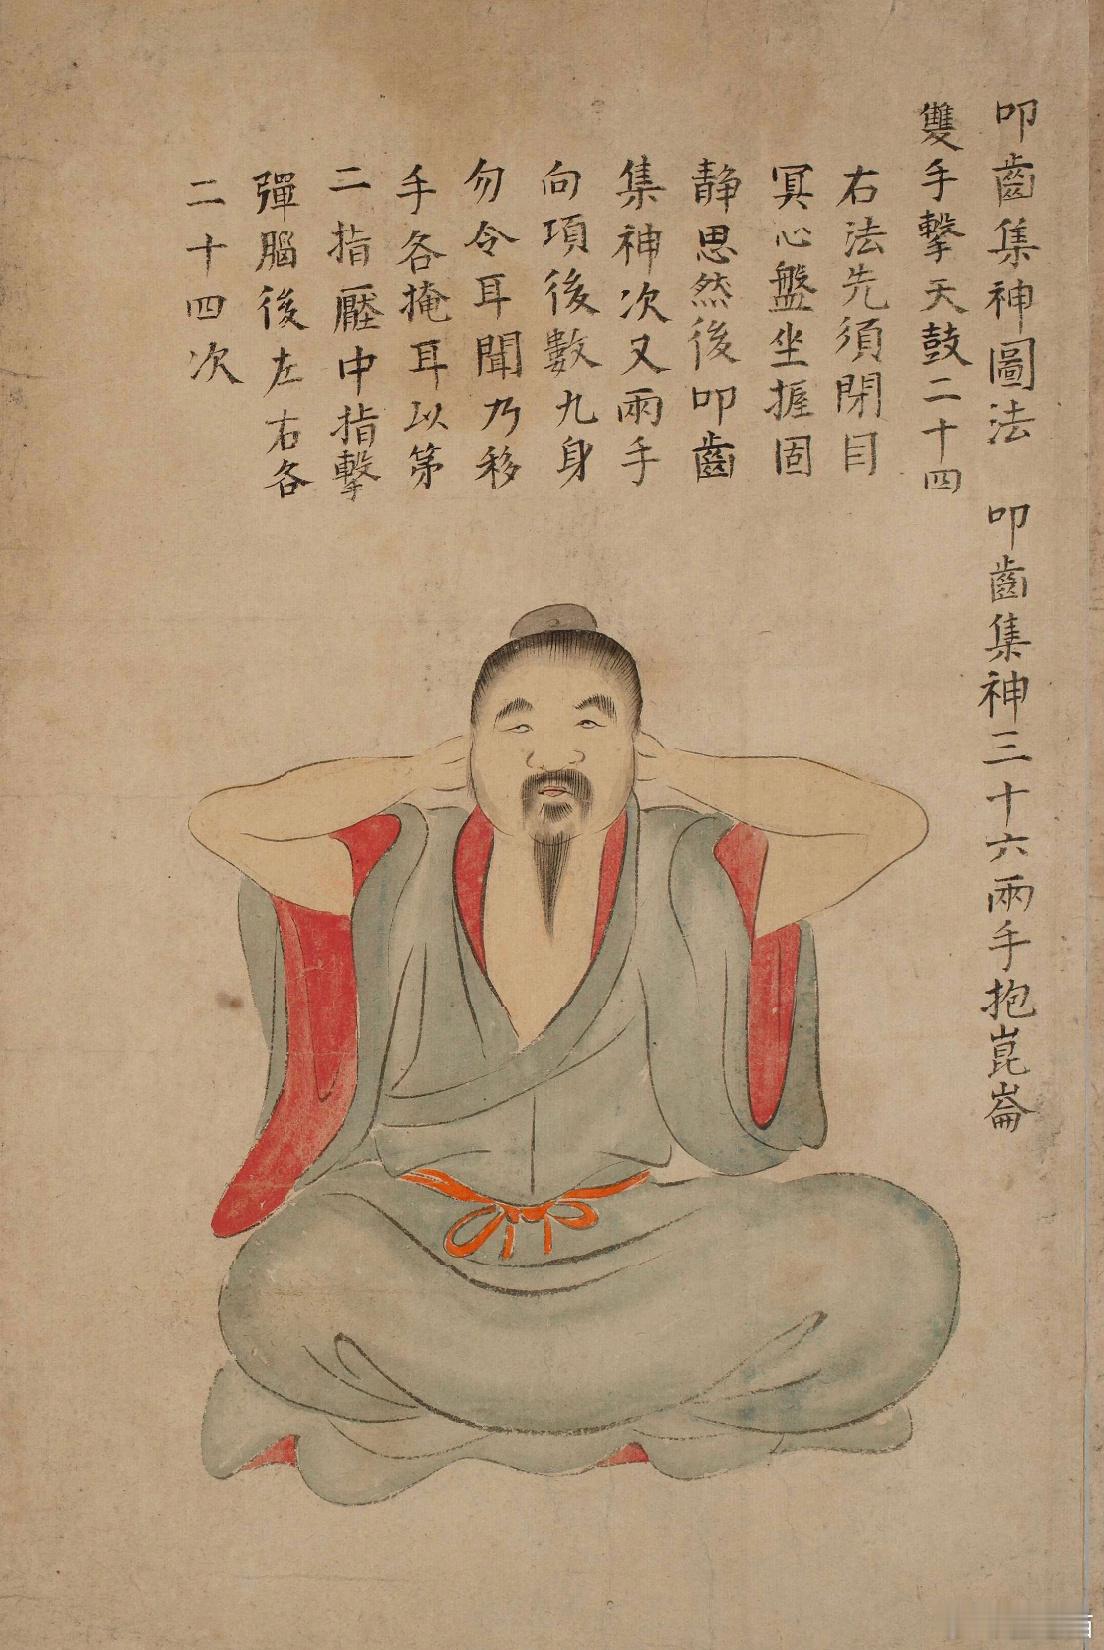 叩齒集神圖法 叩齒集神三十六兩手抱崑崙
雙手擊天鼓二十四
右法先須閉目
冥心盤坐握固
靜思然後叩齒
集神次又兩手
向項後數九身
勿令耳聞乃移
手各掩耳以第
二指壓中指擊
彈腦後左右各
二十四次